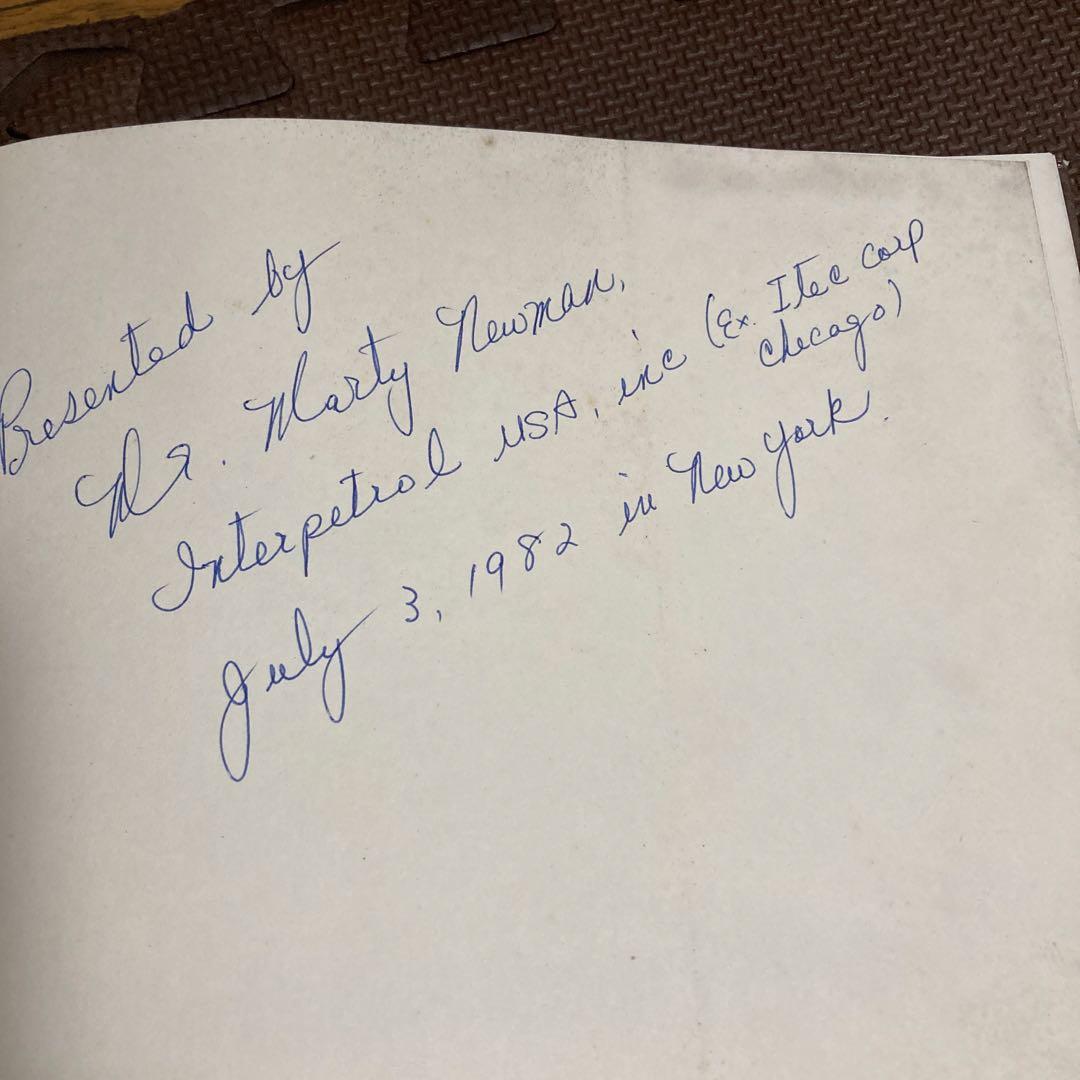 Presented by
Mr. Marty Newman,
Interpetrol USA, inc (Ex. Itec Corp
Chicago)
July 3, 1982 in New York.